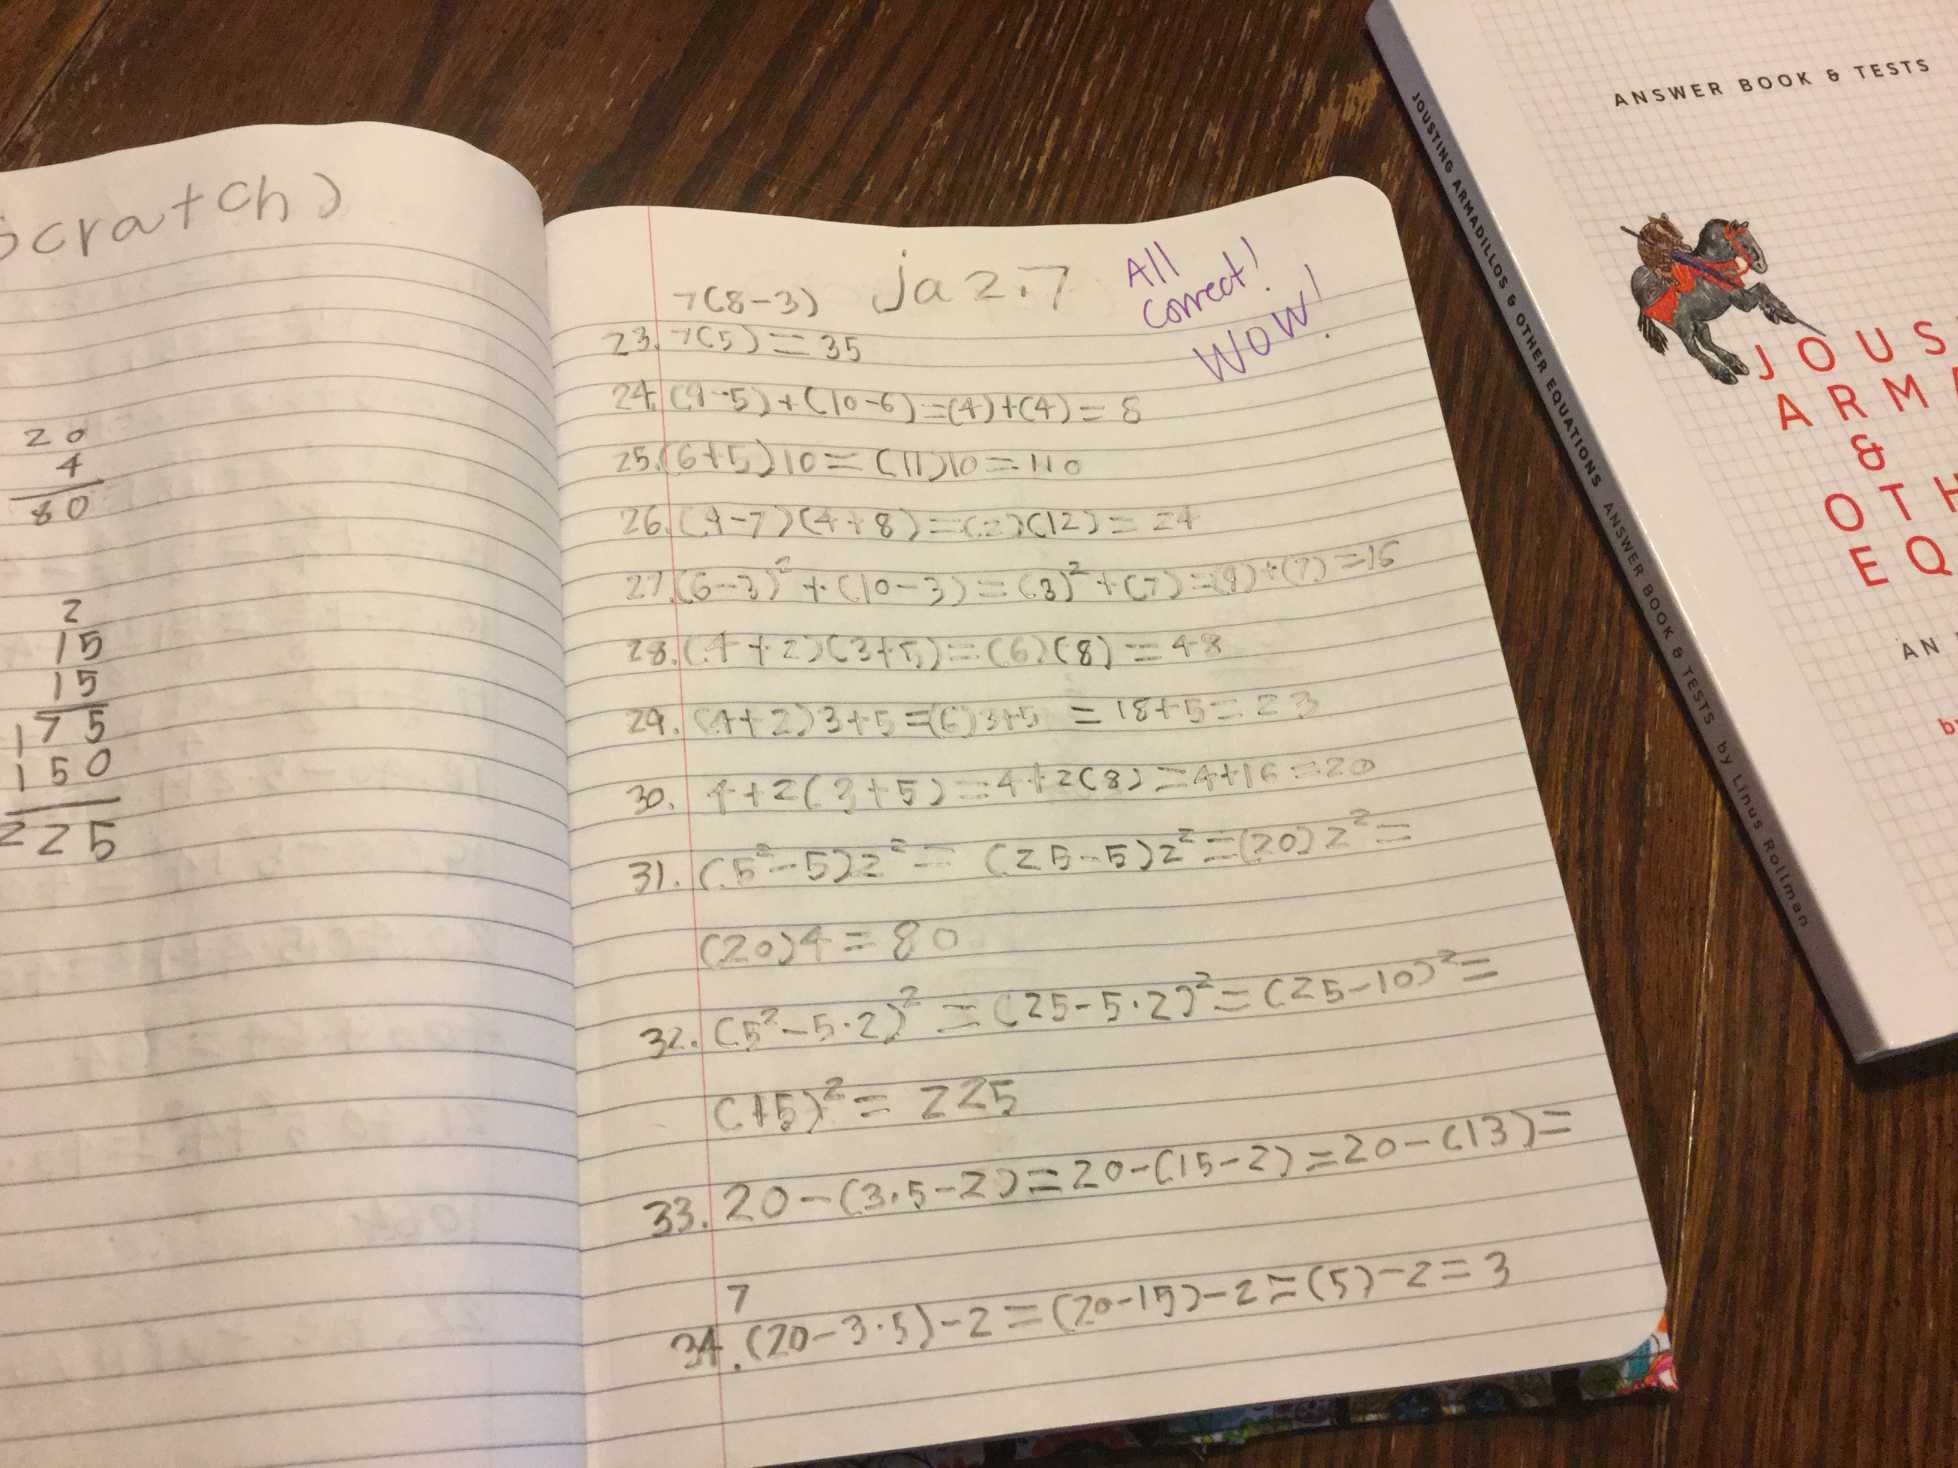 Scratch)
20
4
80
2
15
15
175
150
225
ja 2.7
All
correct!
WOW!
7(8-3)
23. 7(5)=35
24. (9-5)+(10-6)=(4)+(4)=8
25. (6+5)10=(11)10=110
26. (9-7)(4+8)=(2)(12)=24
27. (6-3)²+(10-3)=(3)²+(7)=(9)+(7)=16
28. (4+2)(3+5)=(6)(8)=48
29. (4+2)3+5=(6)3+5 =18+5=23
30. 4+2(3+5)=4+2(8)=4+16=20
31. (5²-5)2²= (25-5)2²=(20)2²=
(20)4=80
32. (5²-5·2)²=(25-5·2)²=(25-10)²=
(15)²= 225
33. 20-(3·5-2)=20-(15-2)=20-(13)=
7
34. (20-3·5)-2=(20-15)-2=(5)-2=3
ANSWER BOOK & TESTS
JOUS
ARM
&
OTH
EQ
AN
b
JOUSTING ARMADILLOS & OTHER EQUATIONS ANSWER BOOK & TESTS by Linus Rollman